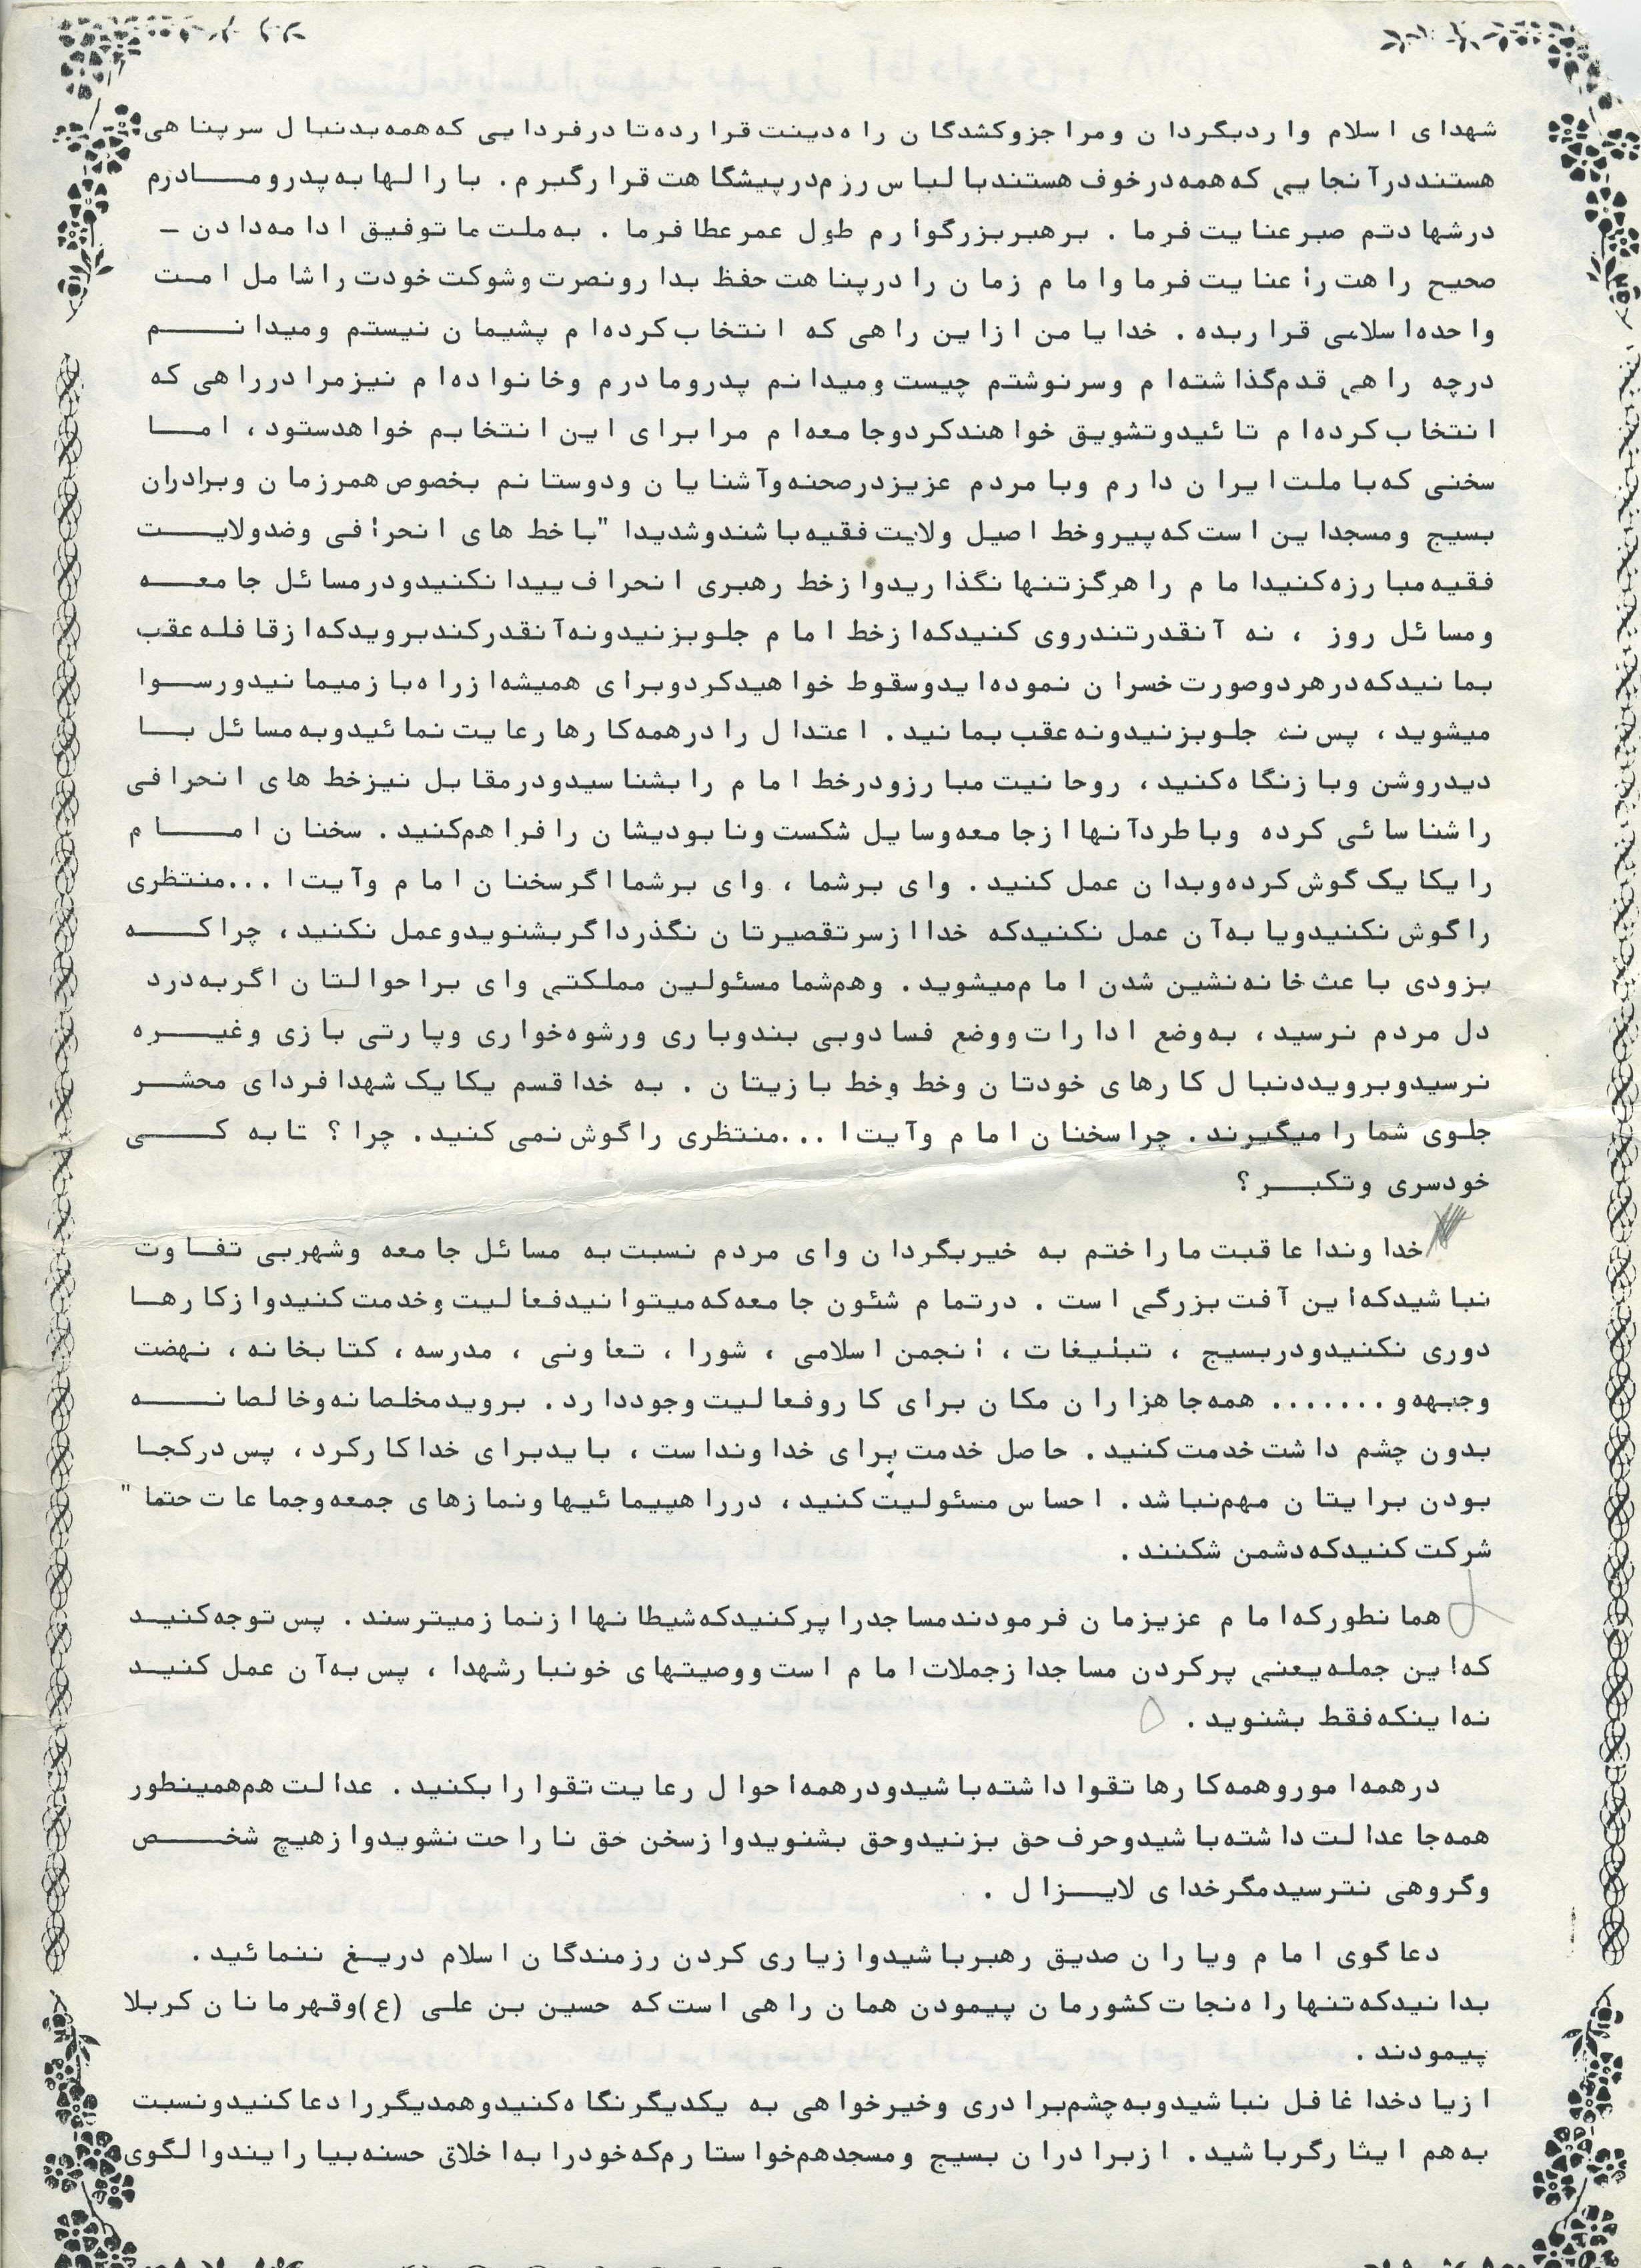 شهدای اسلام واردبگردان ومرا جزوکشدگان راه دینت قرارده تا درفردایی که همه بدنبال سرپناهی
هستند درآنجایی که همه درخوف هستند با لباس رزم در پیشگاهت قرارگیرم . بارالها به پدرومـــادرم
درشهادتم صبرعنایت فرما . برهبربزرگوارم طول عمرعطا فرما . به ملت ما توفیق ادامه دادن ـ
صحیح راهت را عنایت فرما وامام زمان را درپناهت حفظ بدارونصرت وشوکت خودت را شامل امـت
واحده اسلامی قراربده . خدایا من ازاین راهی که انتخاب کرده ام پشیمان نیستم ومیدانـــم
درچه راهی قدم گذاشته ام وسرنوشتم چیست ومیدانم پدرومادرم وخانواده ام نیزمرا درراهی که
انتخاب کرده ام تائیدوتشویق خواهندکردوجامعه ام مرا برای این انتخابم خواهدستود ، امــا
سخنی که با ملت ایران دارم وبا مردم عزیزدرصحنه وآشنایان ودوستانم بخصوص همرزمان وبرادران
بسیج ومسجداین است که پیروخط اصیل ولایت فقیه باشندوشدیدا " با خط های انحرافی وضدولایـــت
فقیه مبارزه کنیدامام را هرگزتنها نگذاریدوازخط رهبری انحراف پیدا نکنیدودرمسائل جامعـــه
ومسائل روز ، نه آنقدرتندروی کنیدکه ازخط امام جلوبزنیدونه آنقدرکندبرویدکه ازقافله عقب
بمانیدکه درهردوصورت خسران نموده ایدوسقوط خواهیدکردوبرای همیشه ازراه بازمیمانیدورسـوا
میشوید ، پس نه جلوبزنیدونه عقب بمانید . اعتدال را درهمه کارها رعایت نمائیدوبه مسائل بــا
دیدروشن وبازنگاه کنید ، روحانیت مبارزودرخط امام را بشناسیدودرمقابل نیزخط های انحرافی
را شناسائی کرده وبا طردآنها ازجامعه وسایل شکست ونابودیشان را فراهم کنید . سخنان امـــام
را یکایک گوش کرده وبدان عمل کنید . وای برشما ، وای برشمااگرسخنان امام وآیت ا ...منتظری
را گوش نکنیدویا به آن عمل نکنیدکه خدا ازسرتقصیرتان نگذرداگربشنویدوعمل نکنید ، چراکـــه
بزودی باعث خانه نشین شدن امام میشوید . وهم شما مسئولین مملکتی وای براحوالتان اگربه درد
دل مردم نرسید ، به وضع ادارات ووضع فسادوبی بندوباری ورشوه خواری وپارتی بازی وغیـــره
نرسیدوبرویددنبال کارهای خودتان وخط وخط بازیتان . به خدا قسم یکایک شهدا فردای محشـــر
جلوی شما را میگیرند . چرا سخنان امام وآیت ا ...منتظری را گوش نمی کنید . چرا ؟ تا به کـــی
خودسری وتکبـــر ؟
خداوندا عاقبت ما را ختم به خیربگردان وای مردم نسبت به مسائل جامعه وشهربی تفــاوت
نباشیدکه این آفت بزرگی است . درتمام شئون جامعه که میتوانیدفعالیت وخدمت کنیدوازکارهــا
دوری نکنیدودربسیج ، تبلیغات ، انجمن اسلامی ، شورا ، تعاونی ، مدرسه ، کتابخانه ، نهضت
وجبهه و ....... همه جا هزاران مکان برای کاروفعالیت وجوددارد . برویدمخلصانه وخالصانـــه
بدون چشم داشت خدمت کنید . حاصل خدمت برای خدا ونداست ، بایدبرای خدا کارکرد ، پس درکجـا
بودن برایتان مهم نباشد . احساس مسئولیت کنید ، درراهپیمائیها ونمازهای جمعه وجماعات حتما "
شرکت کنیدکه دشمن شکنند .
همانطورکه امام عزیزمان فرمودندمساجدرا پرکنیدکه شیطانها ازنمازمیترسند . پس توجه کنیـد
که این جمله یعنی پرکردن مساجدازجملات امام است ووصیتهای خونبارشهدا ، پس به آن عمل کنیـد
نه اینکه فقط بشنوید .
درهمه اموروهمه کارها تقوا داشته باشیدودرهمه احوال رعایت تقوا را بکنید . عدالت هم همینطور
همه جا عدالت داشته باشیدوحرف حق بزنیدوحق بشنویدوازسخن حق ناراحت نشویدوازهیچ شخــص
وگروهی نترسیدمگرخدای لایــزال .
دعاگوی امام ویاران صدیق رهبرباشیدوازیاری کردن رزمندگان اسلام دریـغ ننمائید .
بدانیدکه تنها راه نجات کشورمان پیمودن همان راهی است که حسین بن علی (ع)وقهرمانان کربلا
پیمودند .
ازیادخدا غافل نباشیدوبه چشم برادری وخیرخواهی به یکدیگرنگاه کنیدوهمدیگررا دعا کنیدونسبت
به هم ایثارگرباشید . ازبرادران بسیج ومسجدهم خواستارم که خودرا به اخلاق حسنه بیارایندوالگوی